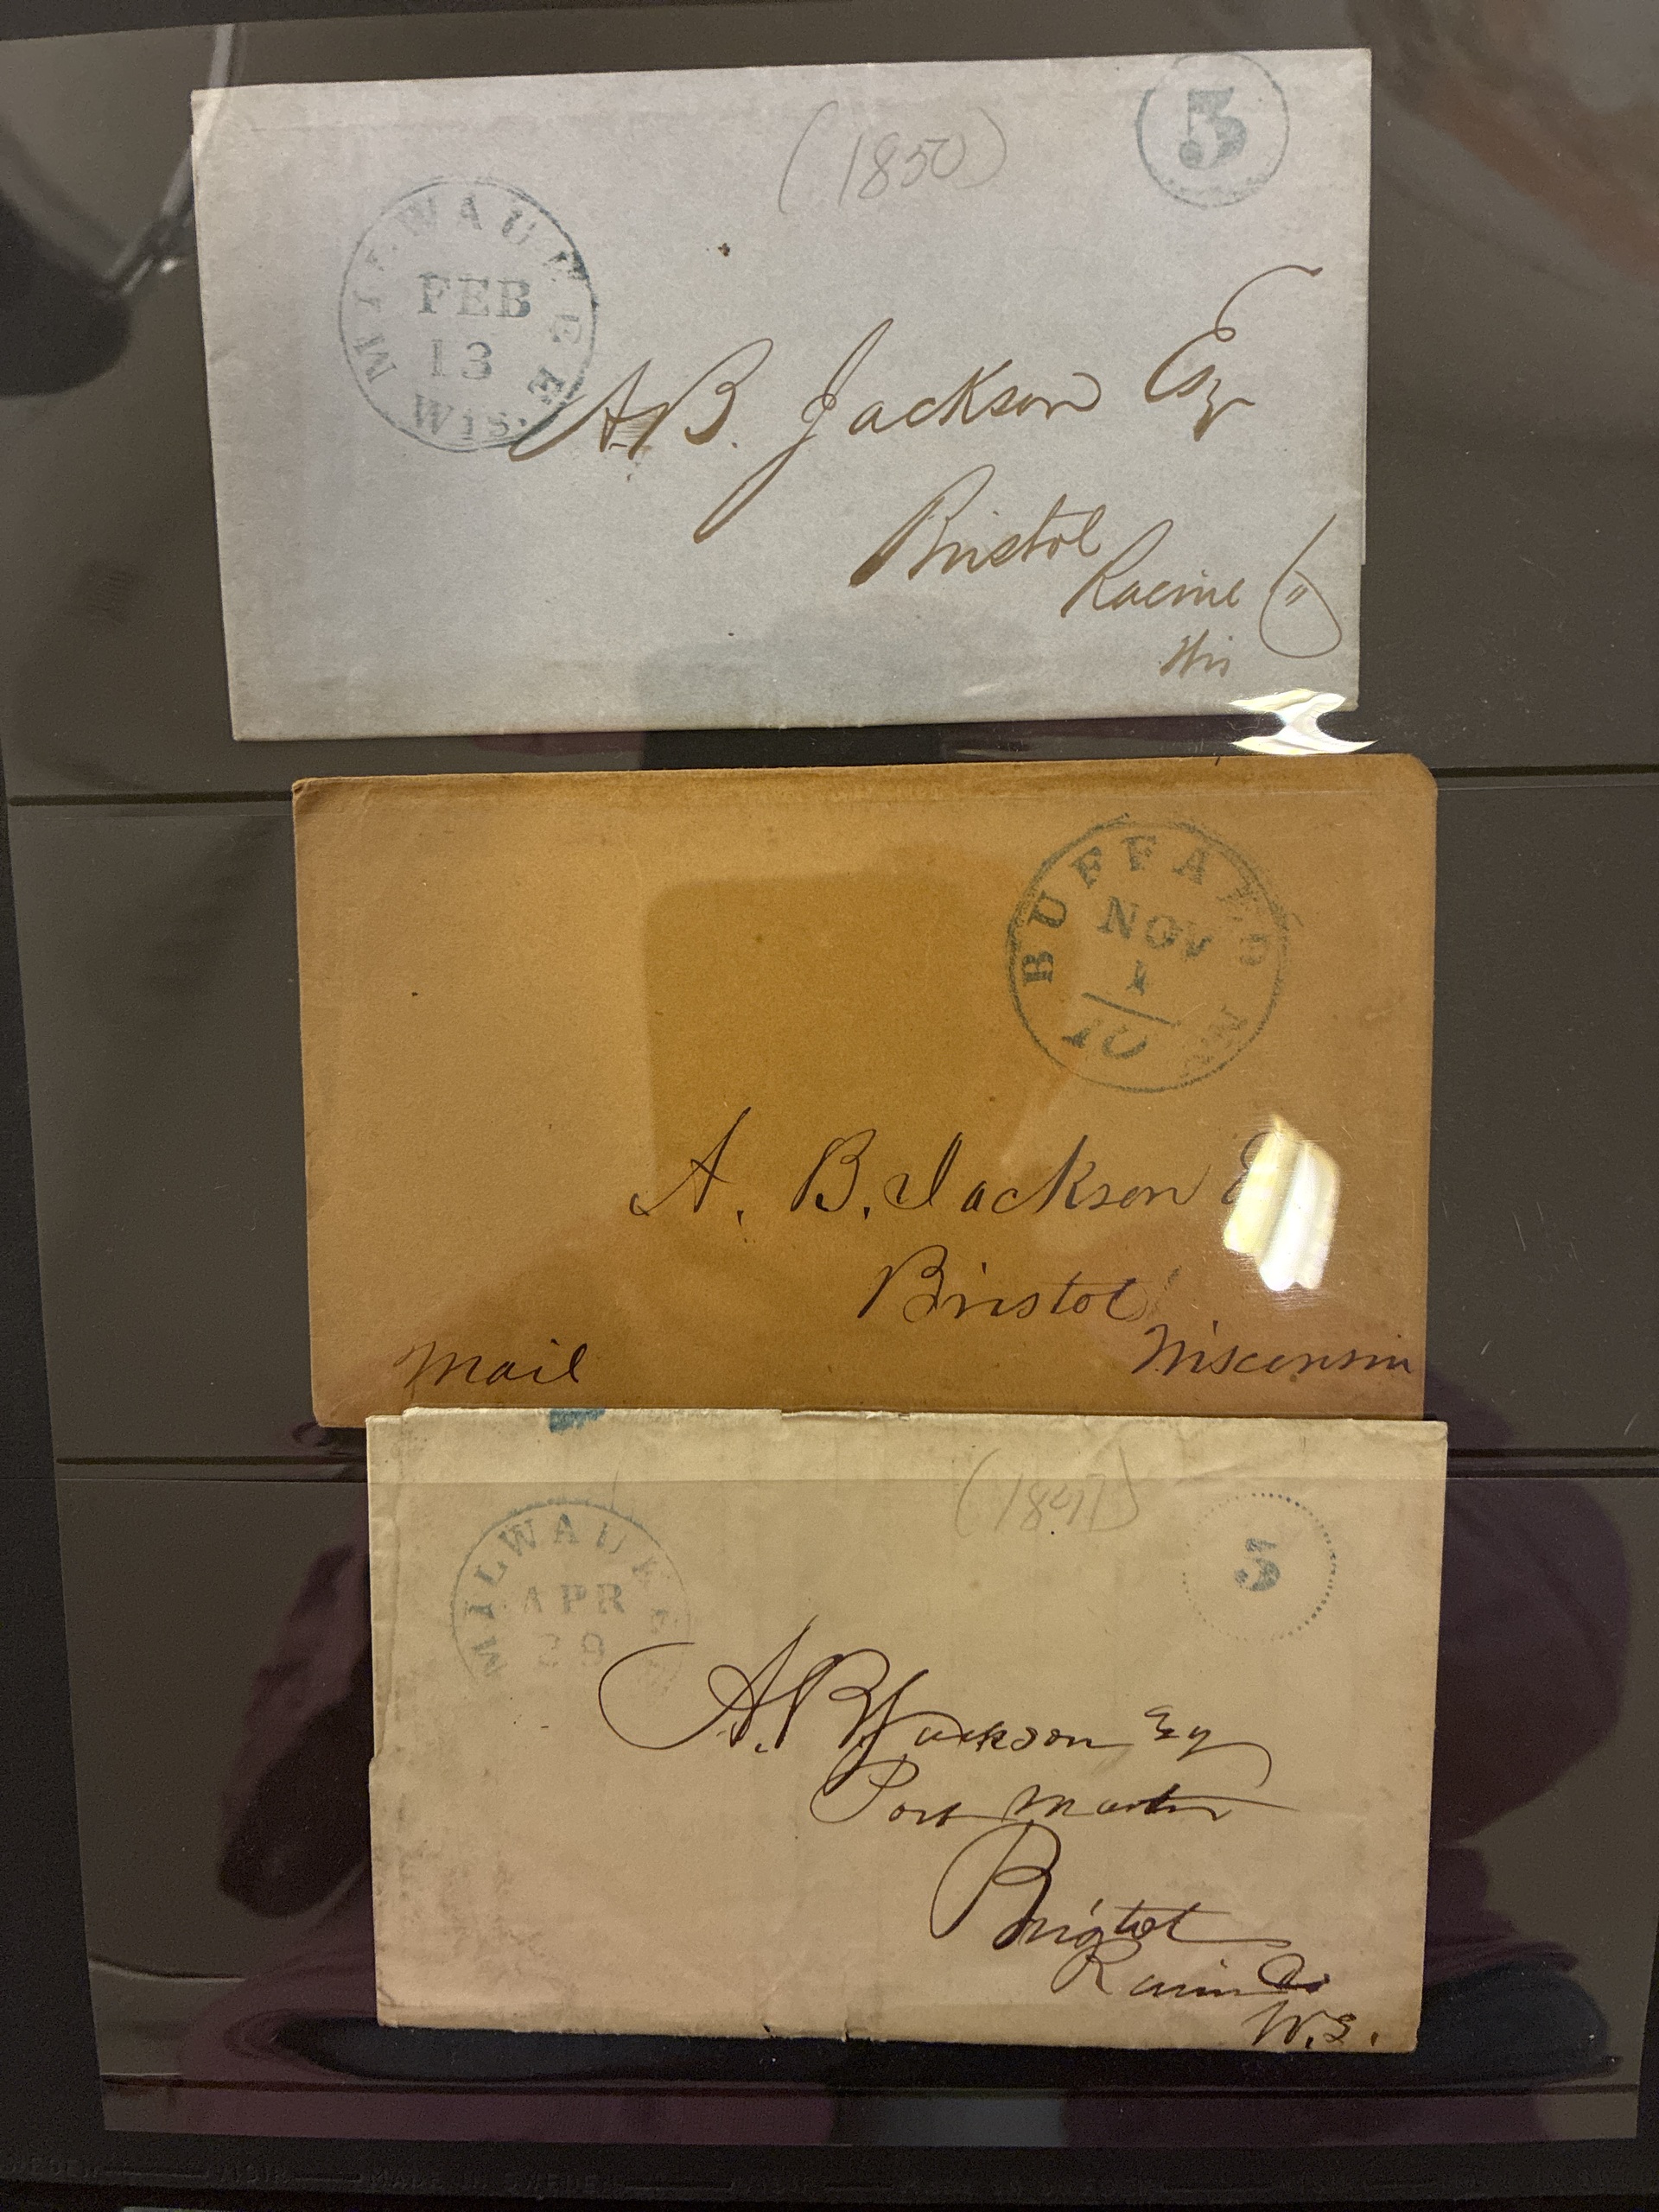 (1850)
5
MILWAUKEE
FEB
13
WIS.
A.B. Jackson Esq
Bristol
Racine Co
Wis
BUFFALO N.Y
NOV
1
10
A. B. Jackson
Bristol
Wisconsin
Mail
(1847)
5
MILWAUKEE
APR
29
A. B Jackson Esq
Post Master
Bristol
Racine Co
W.T.
MADE IN SWEDEN